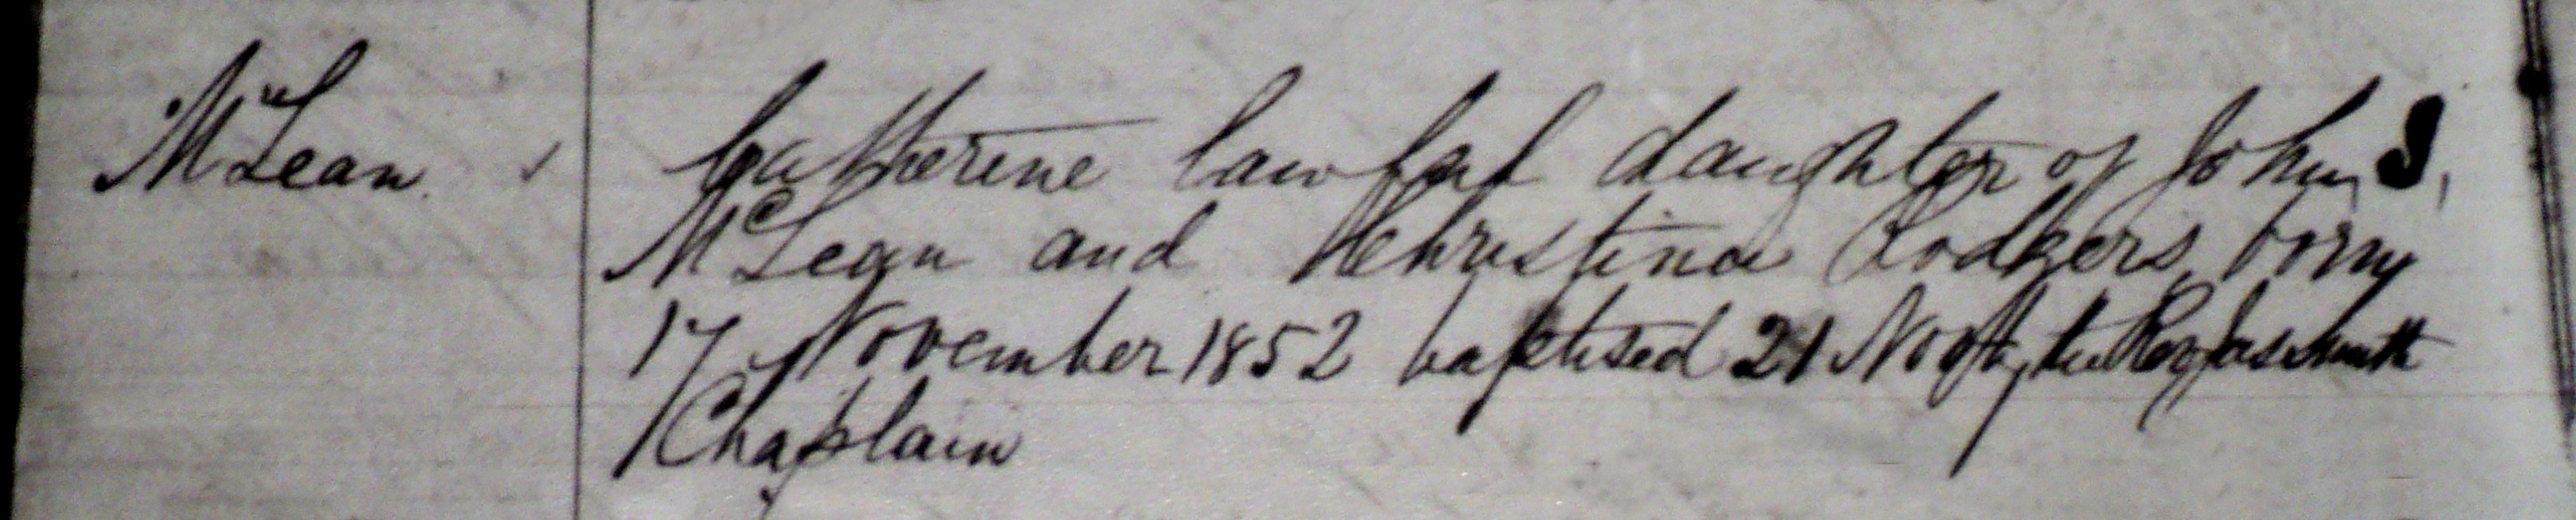 McLean
Catherine lawful daughter of John S.
McLean and Christina Rodgers, born
17 November 1852 baptised 21 Nov by the Rev Jas Smith
Chaplain